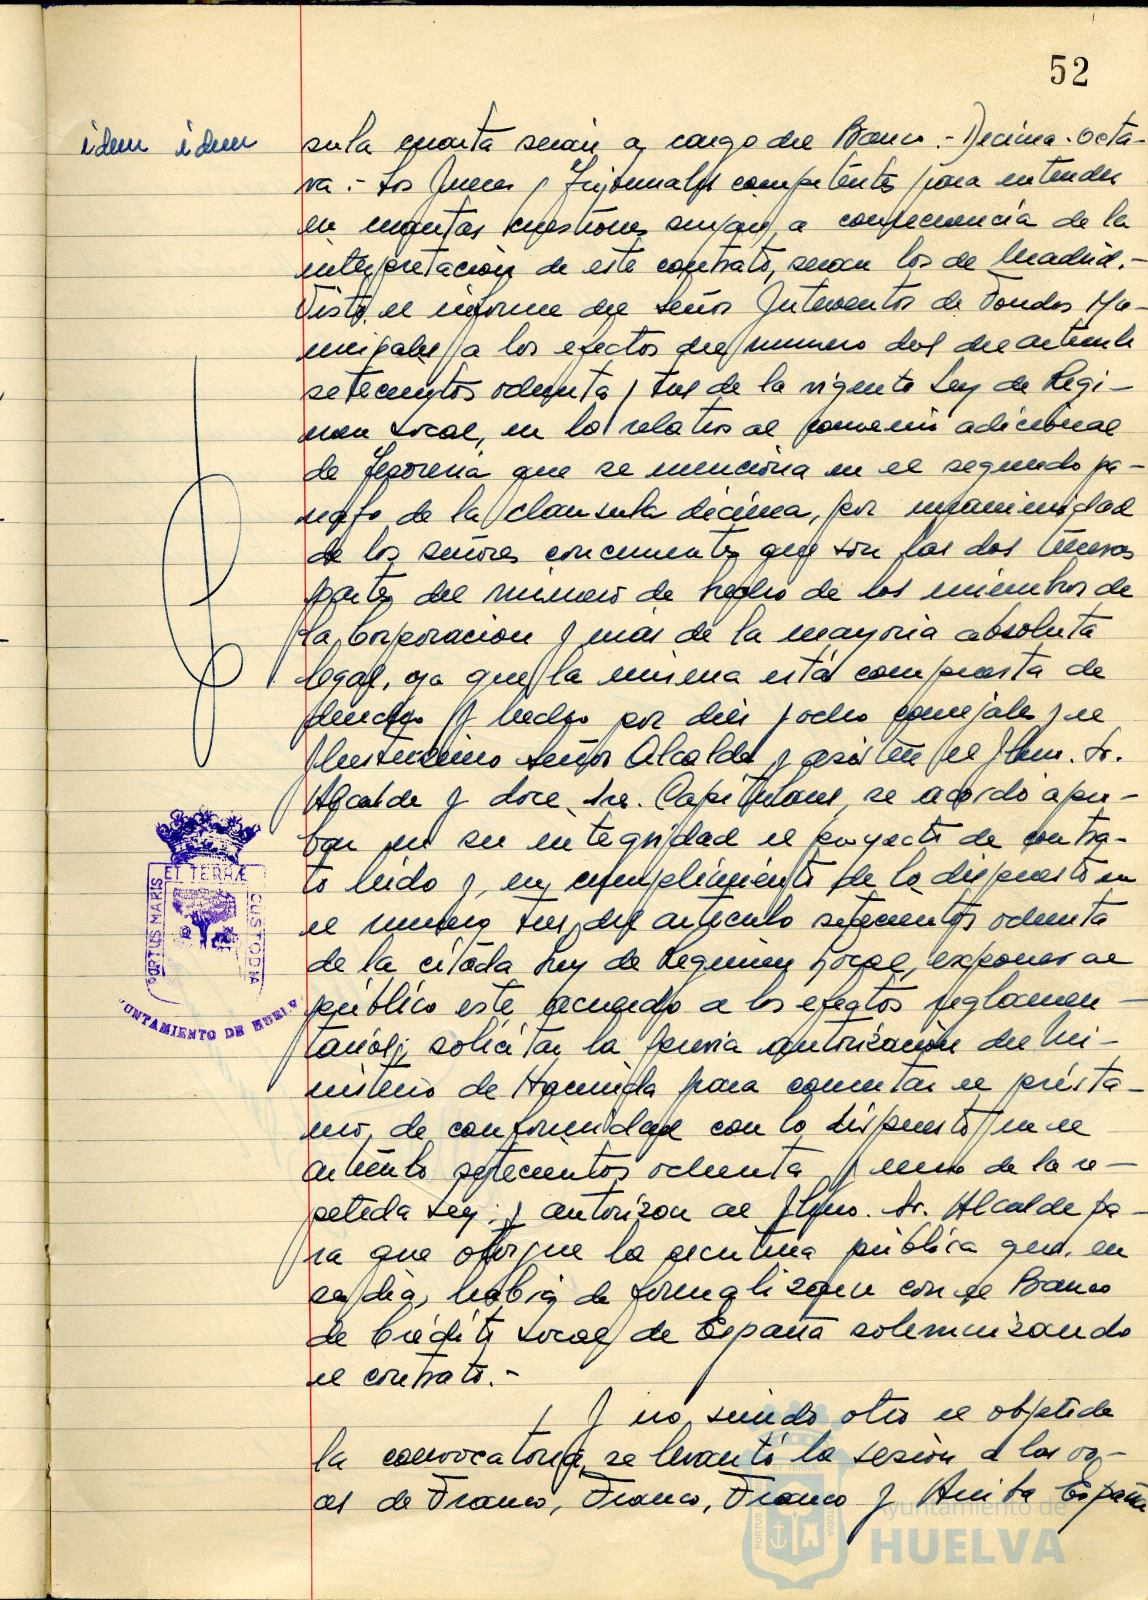 52
idem idem
sula cuarta serán a cargo del Banco.- Décima-octa-
va.- Los Jueces y Tribunales competentes para entender
en cuantas cuestiones surjan, a consecuencia de la
interpretación de este contrato, serán los de Madrid.-
Visto el informe del Señor Interventor de Fondos Mu-
nicipales, a los efectos del número dos del artículo
setecientos ochenta y tres de la vigente Ley de Régi-
men Local, en lo relativo al convenio adicional
de Tesorería que se menciona en el segundo pá-
rrafo de la cláusula décima, por unanimidad
de los señores concurrentes que son las dos terceras
partes del número de hecho de los miembros de
la Corporación y más de la mayoría absoluta
legal, ya que la misma está compuesta de
derecho y hecho por diez y ocho concejales y el
Ilustrísimo Señor Alcalde y asisten el Ilmo. Sr.
Alcalde y doce Sres. Capitulares, se acordó apro-
bar en su integridad el proyecto de contra-
to leído y, en cumplimiento de lo dispuesto en
el número tres del artículo setecientos ochenta
de la citada Ley de Régimen Local, exponer al
público este acuerdo a los efectos reglamen-
tarios; solicitar la previa autorización del Mi-
nisterio de Hacienda para concertar el présta-
mo, de conformidad con lo dispuesto en el
artículo setecientos ochenta y uno de la re-
petida Ley; y autorizar al Ilmo. Sr. Alcalde pa-
ra que otorgue la escritura pública que, en
su día, habrá de formalizarse con el Banco
de Crédito Local de España solemnizando
el contrato.-
Y no siendo otro el objeto de
la convocatoria, se levantó la sesión a las vo-
ces de Franco, Franco, Franco y Arriba España
PORTUS MARIS
ET TERRÆ
CUSTODIA
UNTAMIENTO DE HUELV
Ayuntamiento de
HUELVA